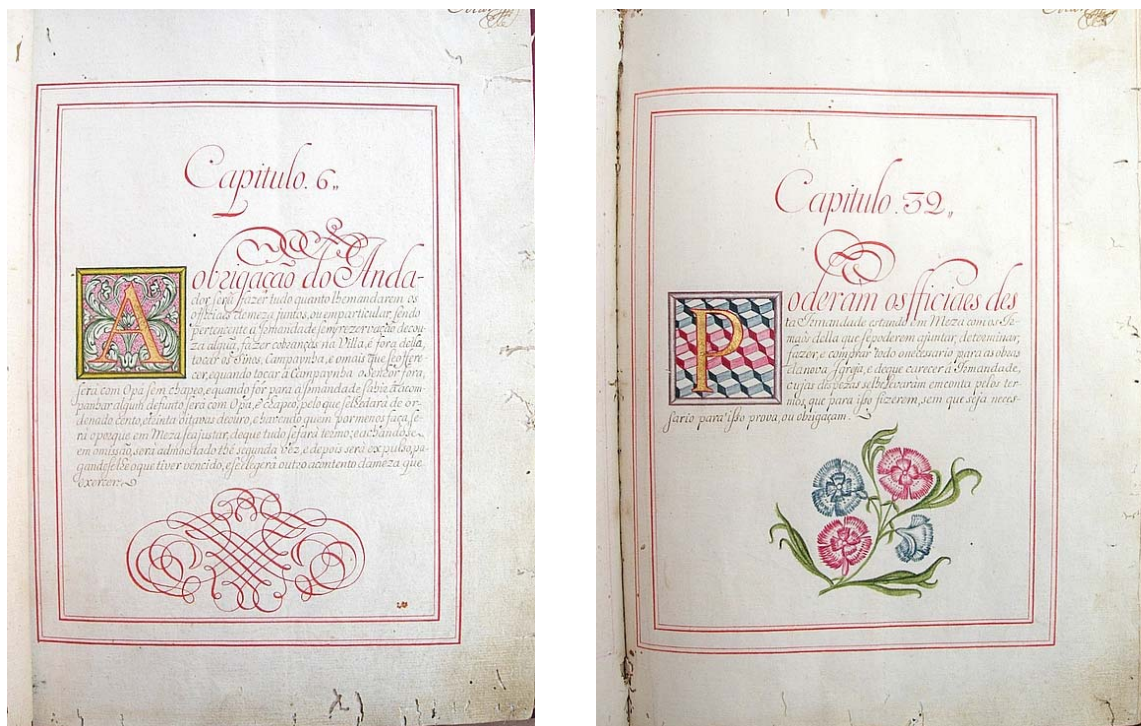 Capitulo. 6,,
A obrigação do Anda-
dor, será fazer tudo quanto lhe mandarem os
officiaes da meza juntos, ou em particular, sendo
pertencente a Irmandade sem rezervação de cou-
za algũa, fazer cobranças na Villa, e fora della,
tocar os Sinos, Campaynha, e o mais que se offere-
cer, e quando tocar a Campaynha o Senhor fora,
será com Opa sem chapeo, e quando for para a Irmandade sahir acom-
panhar algum defunto será com Opa, e Chapeo, pelo que se lhe dará de or-
denado cento, e outavas de ouro, e havendo quem por menos faça, se-
rá o posque em Meza se ajustar, de que tudo se fará termo; e achando se
em omissão, será admoestado thé segunda vez, e depois será expulso, pa-
gandoselhe o que tiver vencido, e se elegerá outro a contento da meza que
exercer.
Capitulo. 32,,
Poderam os officiaes des
ta Irmandade estando em Meza com os Ir-
maõs della que se poderem ajuntar, determinar,
fazer, e comprar todo o necessario para as obras
da nova Igreja, e de que carecer a Irmandade,
cujas despezas se lhe levaram em conta pelos ter-
mos, que para isso fizerem, sem que seja neces-
sario para isso prova, ou obrigaçam.